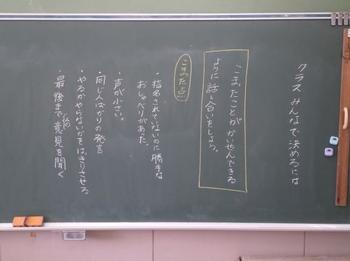 クラスみんなで決めるには
こまったことが、かいけつできる
ように話し合いをしよう。
こまった点
・指名されていないのに勝手な
おしゃべりがあった。
・声が小さい。
・同じ人ばかりの発言
・やるかやらないかをはっきりさせる
・最後まで意見を聞く